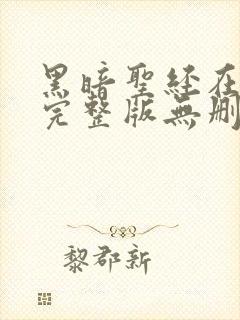 黑暗聖經在
完整版無刪
黎郡新